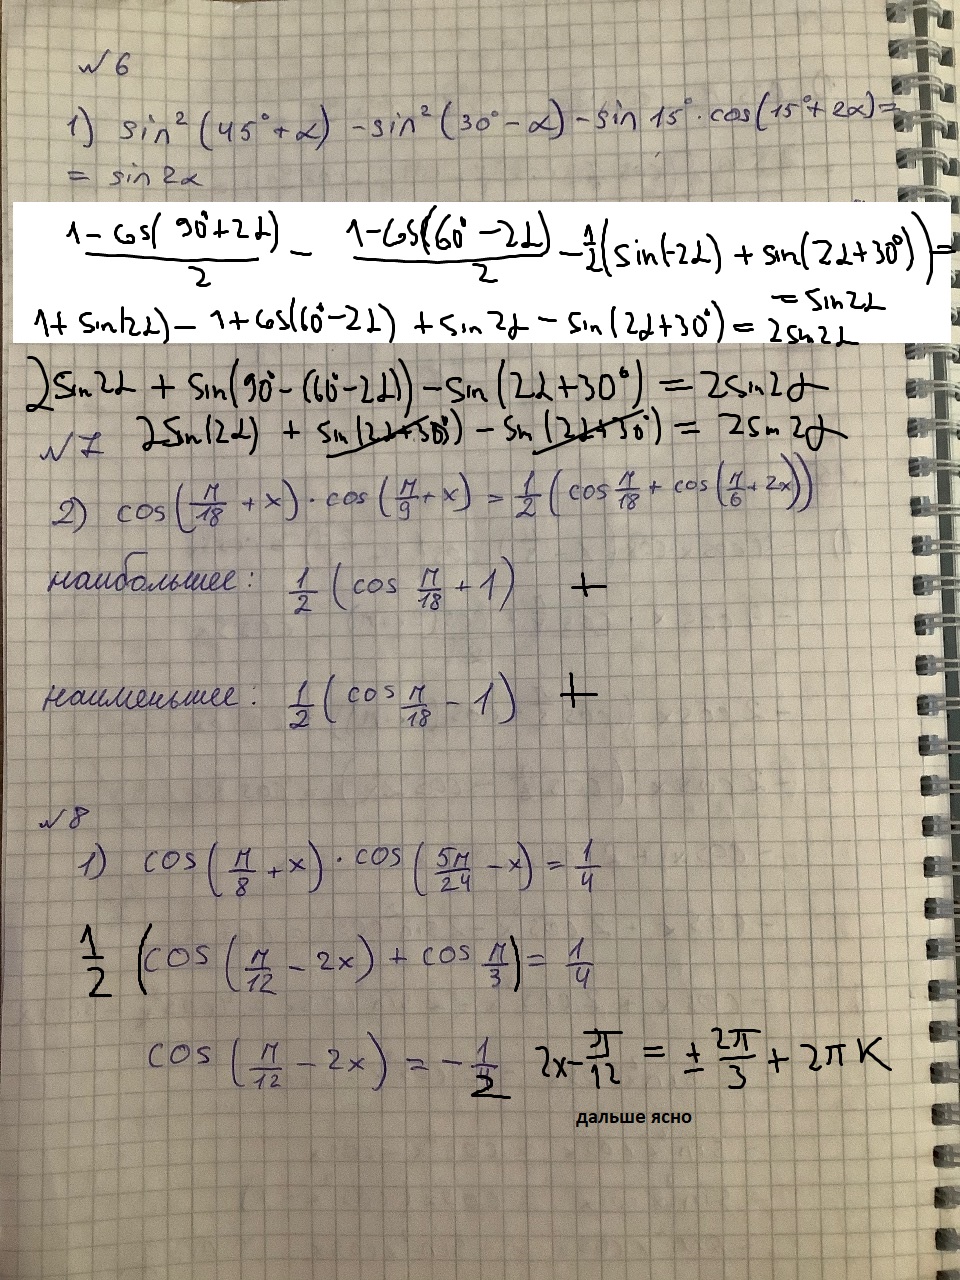 № 6
1) sin² (45° + α) - sin² (30° - α) - sin 15° · cos(15° + 2α) =
= sin 2α
(1 - cos(90° + 2α))/2 - (1 - cos(60° - 2α))/2 - 1/2 (sin(-2α) + sin(2α + 30°)) =
= sin 2α
1 + sin(2α) - 1 + cos(60° - 2α) + sin 2α - sin(2α + 30°) = 2 sin 2α
2 sin 2α + sin(90° - (60° - 2α)) - sin(2α + 30°) = 2 sin 2α
2 sin(2α) + sin(2α + 30°) - sin(2α + 30°) = 2 sin 2α
№ 7
2) cos(π/18 + x) · cos(π/9 + x) = 1/2 (cos π/18 + cos(π/6 + 2x))
наибольшее: 1/2 (cos π/18 + 1) +
наименьшее: 1/2 (cos π/18 - 1) +
№ 8
1) cos(π/8 + x) · cos(5π/24 - x) = 1/4
1/2 (cos(π/12 - 2x) + cos π/3) = 1/4
cos(π/12 - 2x) = - 1/2 2x - π/12 = ± 2π/3 + 2πK
дальше ясно